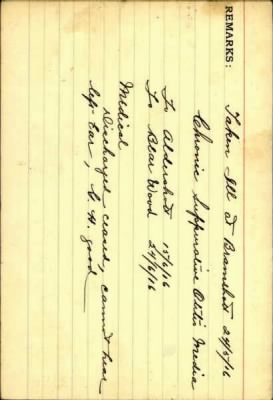 REMARKS:
Taken Ill at Bramshott 24/5/16
Chronic Suppurative Otitis Media
To Aldershot 15/6/16
To Bear Wood 24/6/16
Medical
Discharged ceased, cannot hear
left Ear, G. H. good